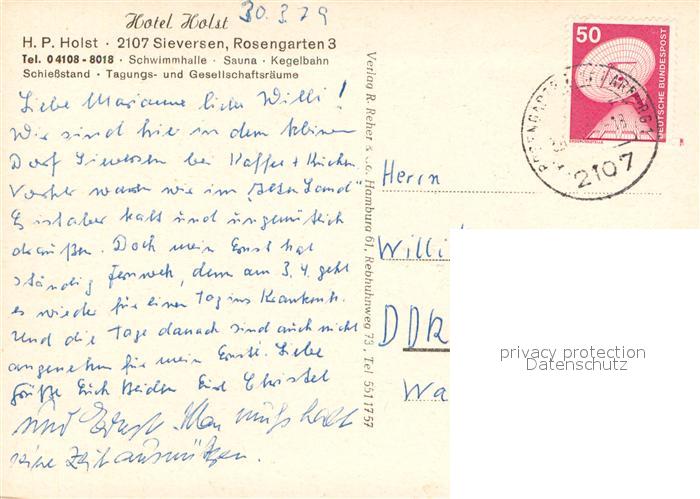 30.3.79
Hotel Holst
H. P. Holst · 2107 Sieversen, Rosengarten 3
Tel. 04108 - 8018 · Schwimmhalle · Sauna · Kegelbahn
Schießstand · Tagungs- und Gesellschaftsräume
Liebe Marianne lieber Willi!
Wir sind hier in dem kleinen
Dorf Sieversen bei Kaffee + Kuchen
Vorher waren wir im "Alten Land"
Es ist aber kalt und ungemütlich
draußen. Doch mein Ernst hat
ständig Fernweh, denn am 3.4. geht
es wieder für einen Tag ins Krankenh.
Und die Tage danach sind auch nicht
angenehm für mein Ernsti. Liebe
Grüße Euch Beiden Eure Christel
und Ernst. Man muß halt
seine Zeit ausnützen.
Verlag R. Reher & Co. Hamburg 61, Rebhuhnweg 73, Tel 551 17 57
50
DEUTSCHE BUNDESPOST
2107
Herrn
Willi
DDR
Wa
privacy protection
Datenschutz